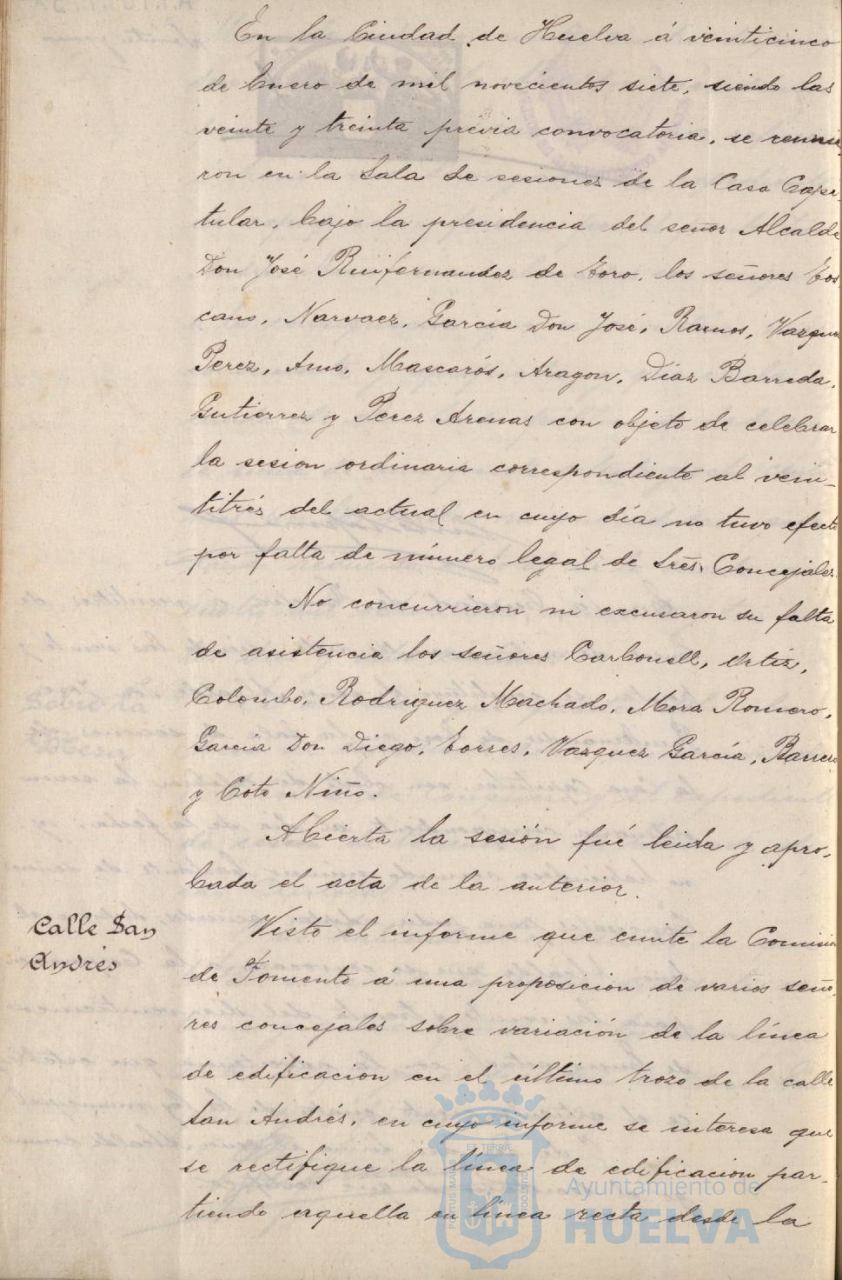 En la Ciudad de Huelva á veinticinco
de Enero de mil novecientos siete, siendo las
veinte y treinta previa convocatoria, se reunie-
ron en la Sala de sesiones de la Casa Capi-
tular, bajo la presidencia del señor Alcalde
Don José Ruifernandez de Toro, los señores Tos
cano, Narvaez, García Don José, Ramos, Vazquez
Perez, Amo, Mascarós, Aragon, Diaz Barreda,
Gutierrez y Perez Arenas con objeto de celebrar
la sesion ordinaria correspondiente al vein-
titrés del actual en cuyo día no tuvo efecto
por falta de número legal de Sres. Concejales.
No concurrieron ni excusaron su falta
de asistencia los señores Carbonell, Ortiz,
Colombo, Rodriguez Machado, Mora Romero,
Garcia Don Diego, Torres, Vazquez García, Barrera
y Coto Niño.
Abierta la sesión fué leida y apro-
bada el acta de la anterior.
Calle San
Andrés
Visto el informe que emite la Comisión
de Fomento á una proposicion de varios seño-
res concejales sobre variación de la línea
de edificacion en el último trozo de la calle
San Andrés, en cuyo informe se interesa que
se rectifique la línea de edificacion par-
tiendo aquella en línea recta desde la
Ayuntamiento de
HUELVA